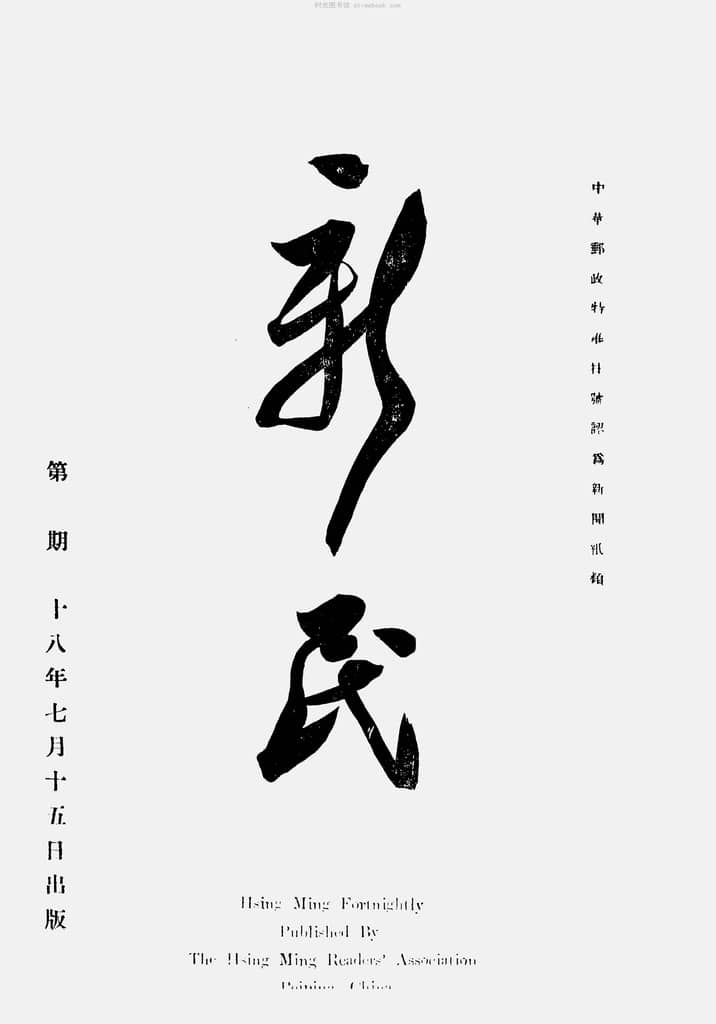 时光图书馆 atreebook.com
中華郵政特准挂號認爲新聞紙類
新民
第 期 十八年七月十五日出版
Hsing Ming Fortnightly
Published By
The Hsing Ming Readers' Association
China